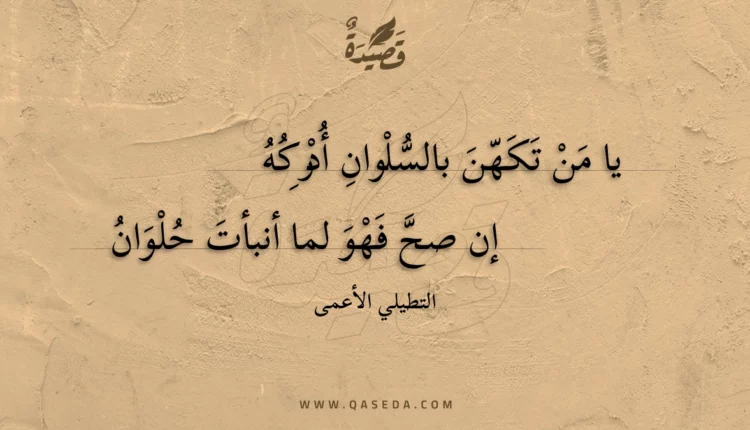 قَصِيدَةٌ
يا مَنْ تَكَهّنَ بالسُّلْوانِ أُوْرِكُهُ
إن صحَّ فَهْوَ لما أنبأتَ حُلْوَانُ
التطيلي الأعمى
WWW.QASEDA.COM